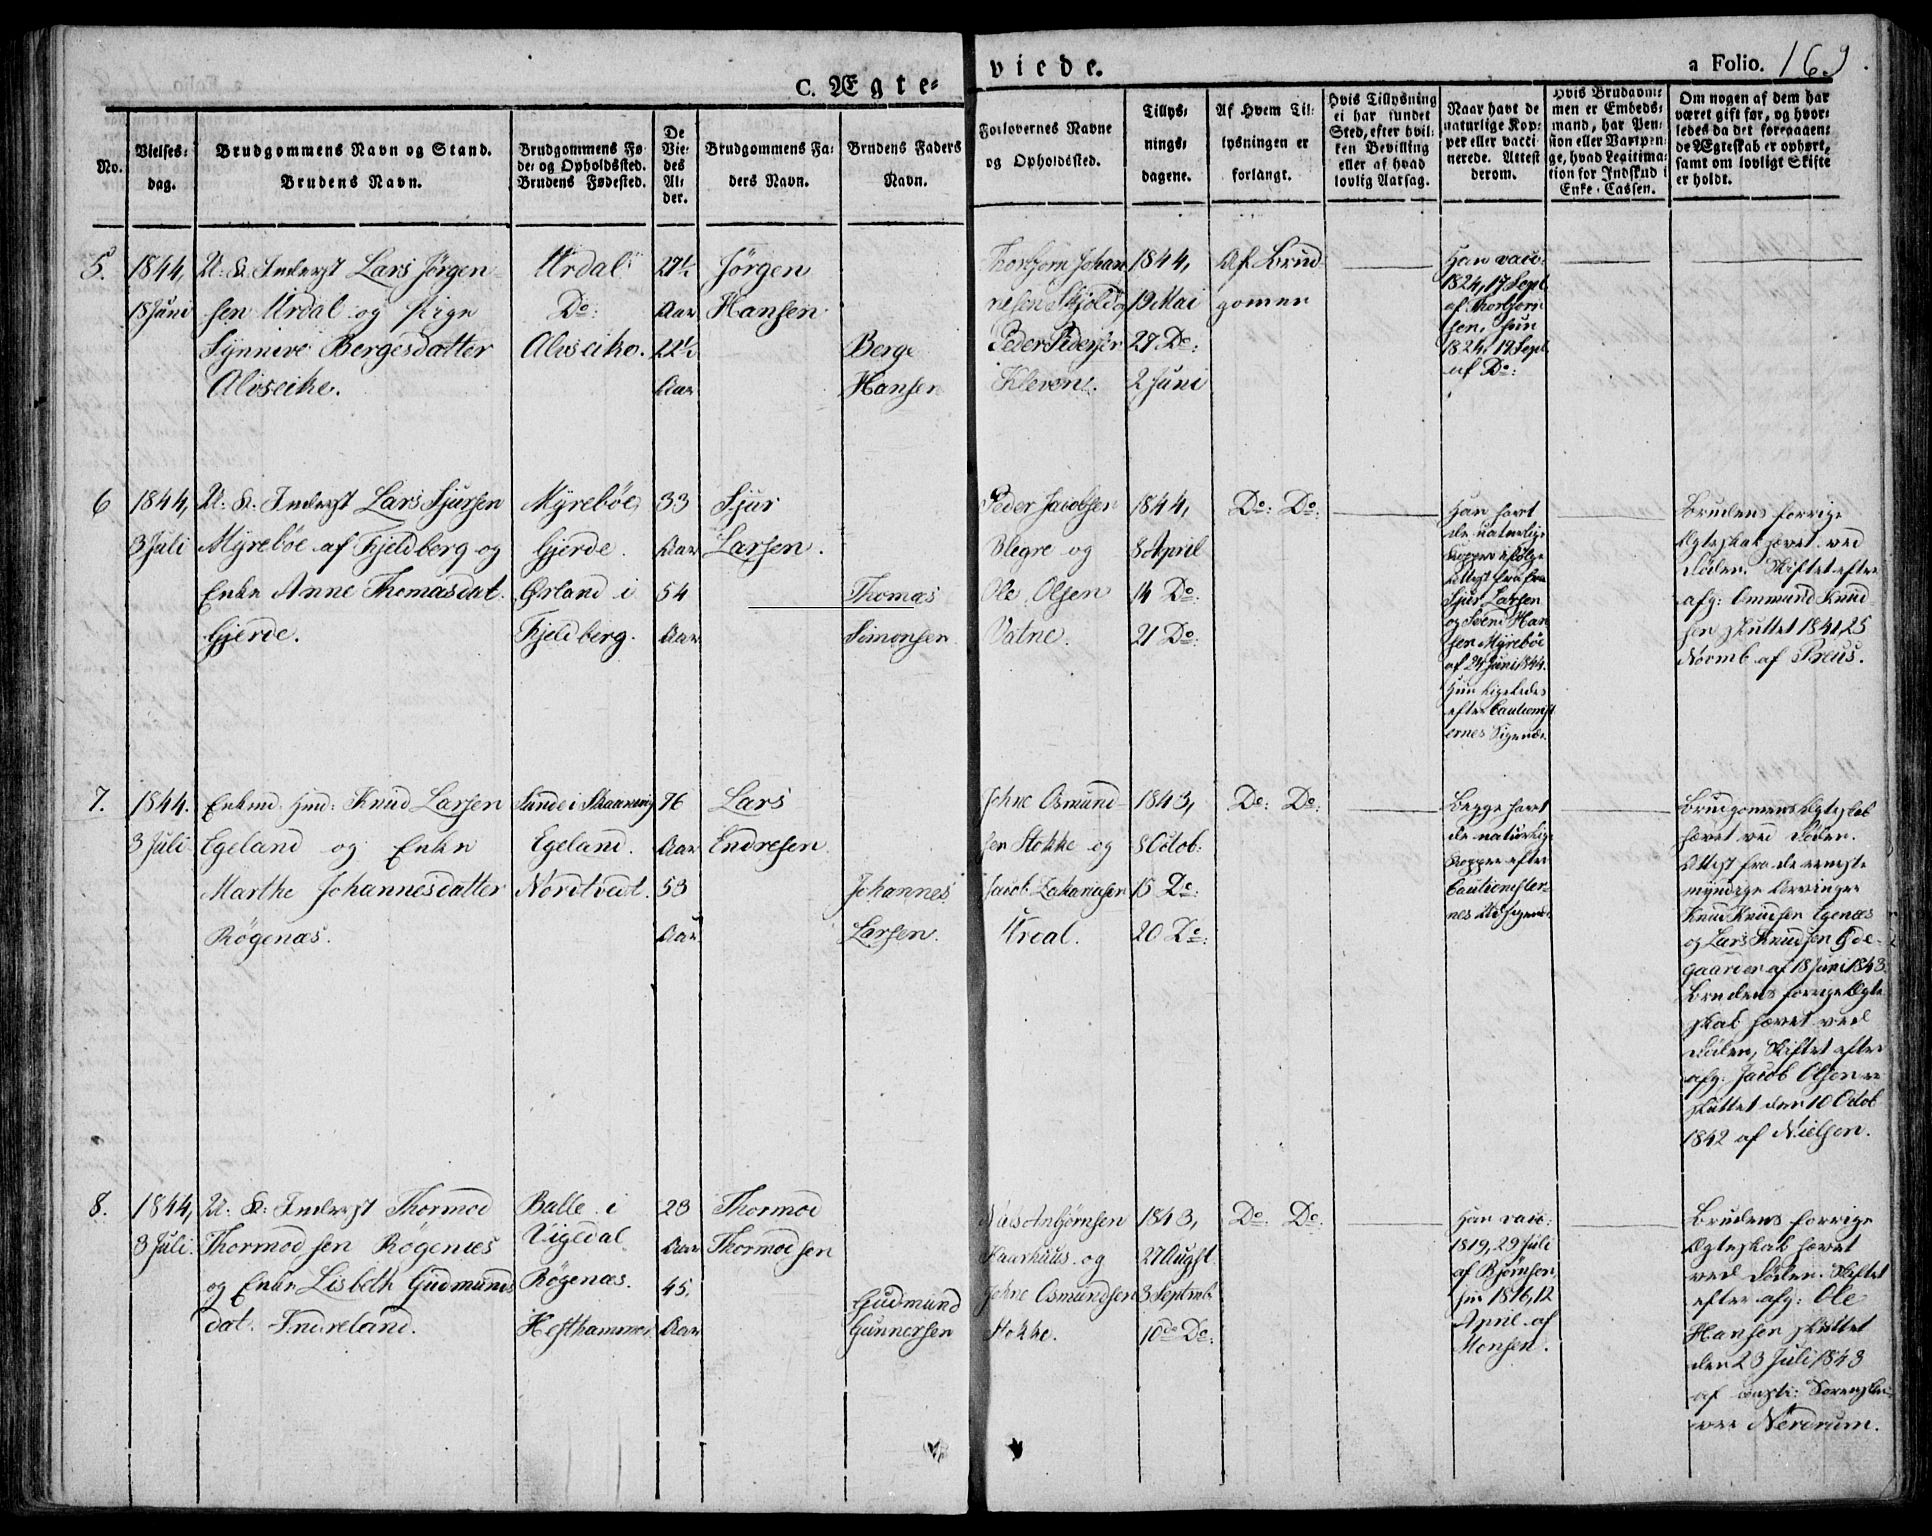 C. Ægte-
viede.
a Folio. 169
No.
Vielses-
dag.
Brudgommens Navn og Stand.
Brudens Navn.
Brudgommens Fø-
de- og Opholdssted.
Brudens Fødested.
De
Vie-
des
Al-
der.
Brudgommens Fa-
ders Navn.
Brudens Faders
Navn.
Forlovernes Navne
og Opholdssted.
Tillys-
nings-
dagene.
Af Hvem Til-
lysningen er
forlangt.
Hvis Tillysning
ei har fundet
Sted, efter hvil-
ken Bevilling
eller af hvad
lovlig Aarsag.
Naar havt de
naturlige Kop-
per eller vacci-
nerede. Attest
derom.
Hvis Brudgom-
men er Embeds-
mand, har Pen-
sion eller Vartpen-
ge, hvad Legitima-
tion for Indskud i
Enke-Cassen.
Om nogen af dem har
været gift før, og hvor-
ledes da det foregaaen-
de Ægteskab er ophørt,
samt om lovligt Skifte
er holdt.
5.
1844,
18 Juni
U: K: Inderst Lars Jørgen
sen Urdal og Pige
Synneve Bergesdatter
Alvseike.
Urdal
Do:
Alvseike.
27½
Aar
22½
Aar
Jørgen
Hansen
Berge
Hansen
Thorbjørn Johan
nesen Skjold og
Peder Pedersen
Kleven.
1844,
19 Mai
27 Do:
2 Juni
Af Brud-
gomen
Han vacc:
1824, 17 Sept
af Thorbjørn
sen, hun
1824, 19 Sept
af Do:
6
1844,
3 Juli
U: K: Inderst Lars Sjursen
Myrebøe af Fjeldberg og
Enke Anne Thomasdat.
Gjerde.
Myrebøe,
Gjerde.
Ørland i
Fjeldberg.
33
Aar
54
Aar
Sjur
Larsen.
Thomas
Simonsen
Peder Jacobsen
Blegre og
Ole Olsen
Vatne.
1844,
8 April
14 Do:
21 Do:
Do: Do:
Han havt
de naturlige
Kopper ifølge
Attest fra
Sjur Larsen
og Svend Han
sen Myrebøe
af 24 Juni 1844.
Hun ligeledes
efter Cautionist
ernes Sigende.
Brudens forrige
Ægteskab hævet ved
Døden. Skiftet efter
afg: Ommund Knud
sen sluttet 1841, 25
Novmb af Preus.
7.
1844.
3 Juli
Enkmd. Huusmd: Knud Larsen
Egeland og Enke
Marthe Johannesdatter
Røgenæs.
Sunde i Skaanevig
Egeland.
Nordtvedt.
76
Aar
53
Aar
Lars
Endresen.
Johannes
Larsen.
Johne Osmund-
sen Stokke og
Jacob Zakariasen
1843,
8 Octob:
15 Do:
20 Do:
Do: Do:
Begge havt
de naturlige
Kopper efter
Cautionister-
nes Udsigende.
Brudgomens Ægteskab
hævet ved Døden.
Attest fra de eneste
myndige Arvinger
Knud Knudsen Egenæs
og Lars Knudsen Øde-
gaarden af 18 Juni 1843.
Brudens forrige Ægte
skab hævet ved
Døden, Skiftet efter
afg: Jacob Olsen er
sluttet den 10 Octob
1842 af Nielsen.
8.
1844,
3 Juli.
U: K: Inderst Thormod
Thormodsen Røgenæs
og Enke Lisbeth Gudmunds
dat. Indreland.
Balle i
Vigedal
Røgenæs.
Hefthammer
23
Aar
45.
Aar
Thormod
Thormodsen
Gudmund
Gunnersen
Niels Anbjørnsen
Haarhuus og
Johne Osmundsen
Stokke.
1843,
27 Augst.
3 Septmb
10de Do:
Do: Do:
Han vacc:
1819, 29 Juli
af Bjørnsen,
hun 1816, 12
April af
Monsen.
Brudens forrige
Ægteskab hævet
ved Døden. Skiftet
efter afg: Ole
Hansen sluttet
den 23 Juli 1843
af const: Sorenskri-
ver Nerdrum.